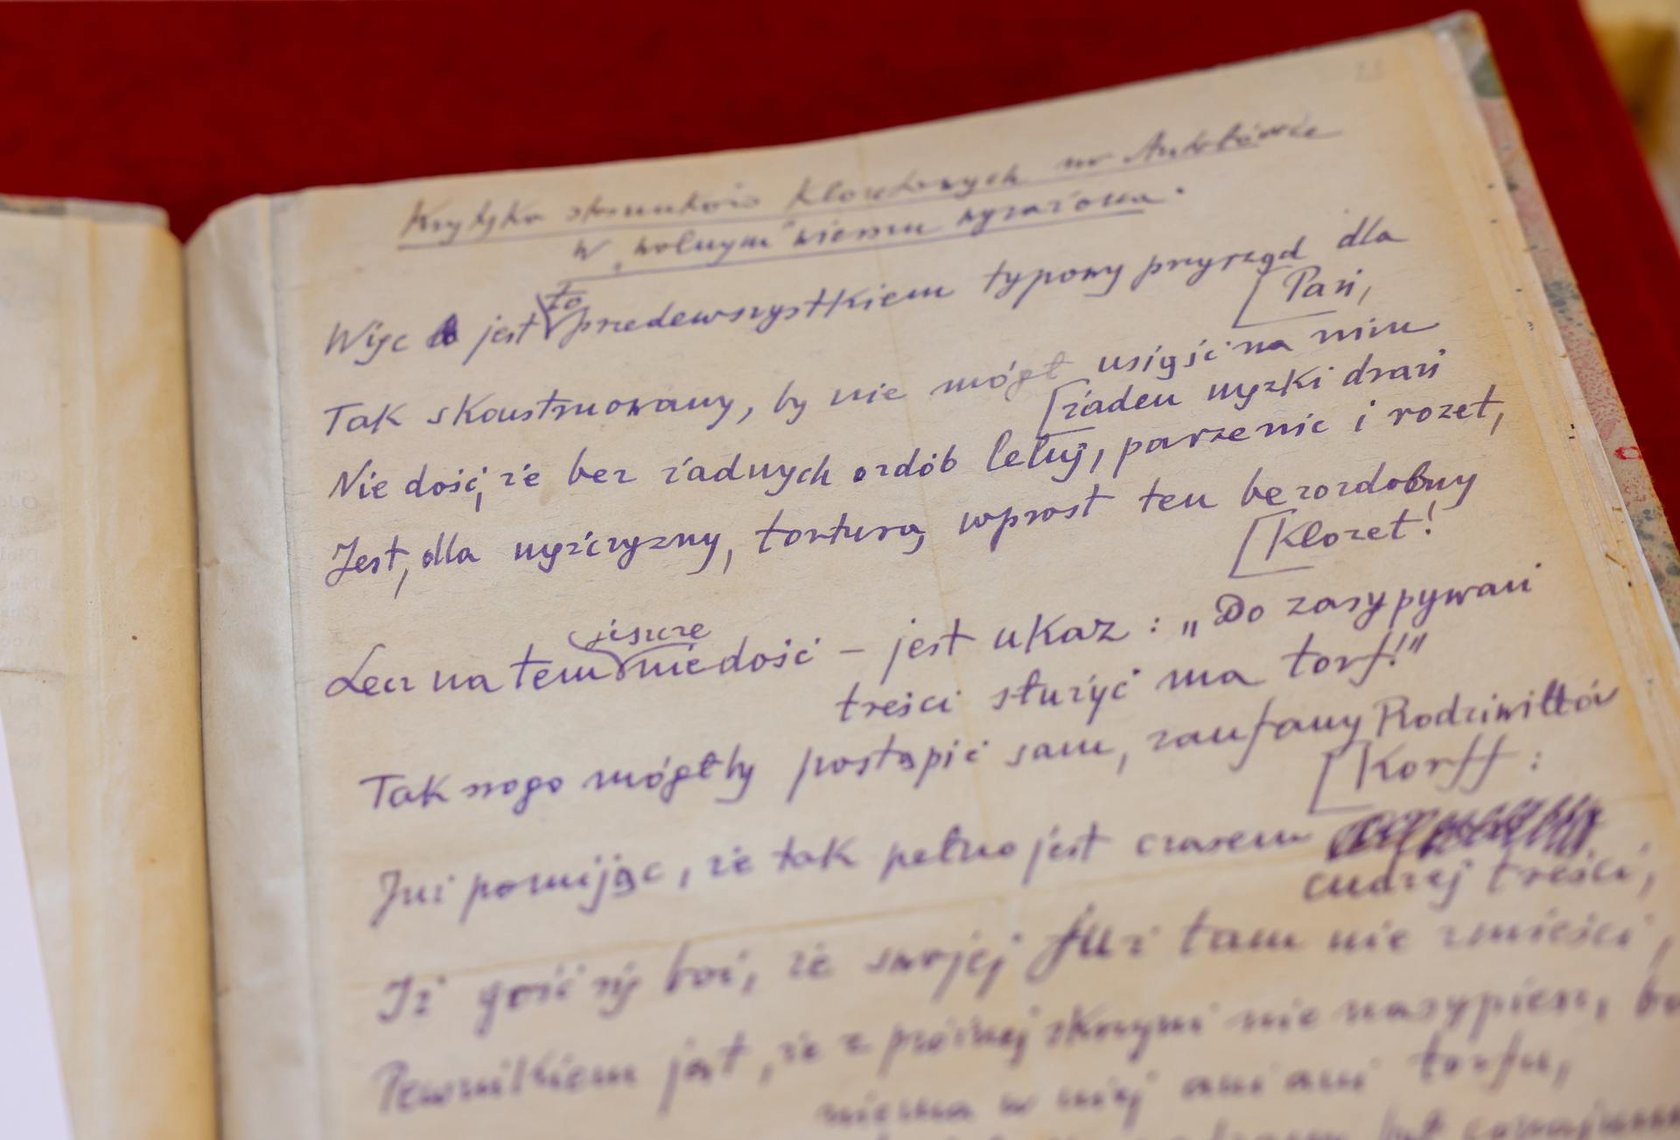 Krytyka stosunków klozetowych w Antołówce
w „wolnym" wierszu wyrażona.
Więc jest to przedewszystkiem typowy przyrząd dla
[Pań,
Tak skonstruowany, by nie mógł usiąść na nim
[żaden męzki drań
Nie dość, że bez żadnych ozdób leluj, parzenic i rozet,
Jest, dla mężczyzny, torturą wprost ten bezozdobny
[Klozet!
Lecz na tem jeszcze niedość – jest ukaz: „Do zasypywań
treści służyć ma torf!"
Tak srogo mógłby postąpić sam, zaufany Radziwiłłów
[Korff:
Już pomijąc, że tak pełno jest czasem
cudzej treści,
Iż gość się boi, że swojej już tam nie zmieści,
Pewnikiem jest, że z próżnej skrzyni nie nasypiesz, bo
niema w niej ani ani torfu,